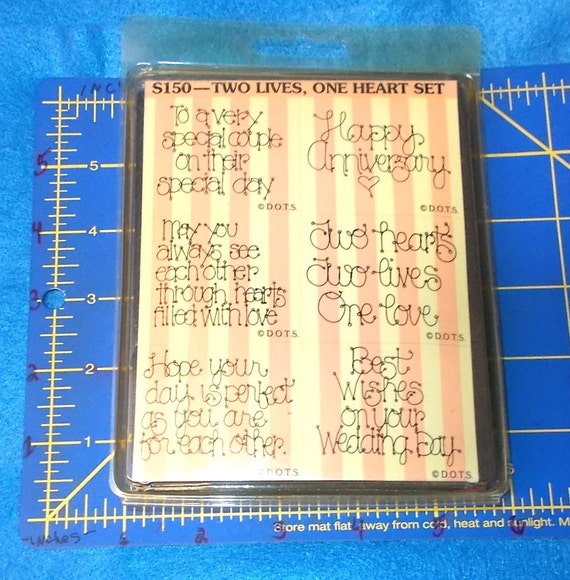 S150—TWO LIVES, ONE HEART SET
To a very
special couple
on their
special day
© D.O.T.S.
Happy
Anniversary
© D.O.T.S.
May you
always see
each other
through hearts
filled with love
© D.O.T.S.
Two hearts
Two lives
One love
© D.O.T.S.
Hope your
day is perfect
as you are
for each other.
© D.O.T.S.
Best
Wishes
on your
Wedding Day
© D.O.T.S.
5
4
3
2
1
5
4
3
2
1
Store mat flat, away from cold, heat and sunlight.
-inches-